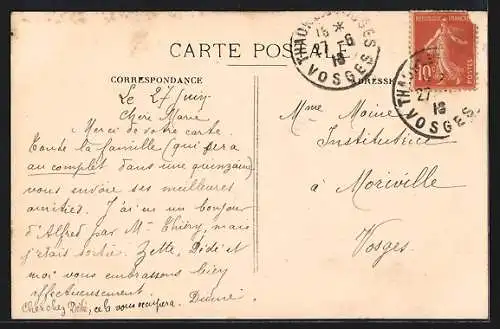 CARTE POSTALE
CORRESPONDANCE
Le 27 Juin
Chère Marie
Merci de votre carte.
Toute la famille (qui sera
au complet dans une quinzaine)
vous envoie ses meilleures
amitiés. J'ai eu un bonjour
d'Alfred par Mme Thiéry, mais
j'étais sortie. Zette, Didi et
moi vous embrassons bien
affectueusement.
Cherchez Didi, ça vous occupera.
ADRESSE
Mme Moine
Institutrice
à Moriville
Vosges.
THAON-LES-VOSGES
18 *
27 -6
18
VOSGES
REPUBLIQUE FRANÇAISE
10c
POSTES
THAON
27
18
VOSGES